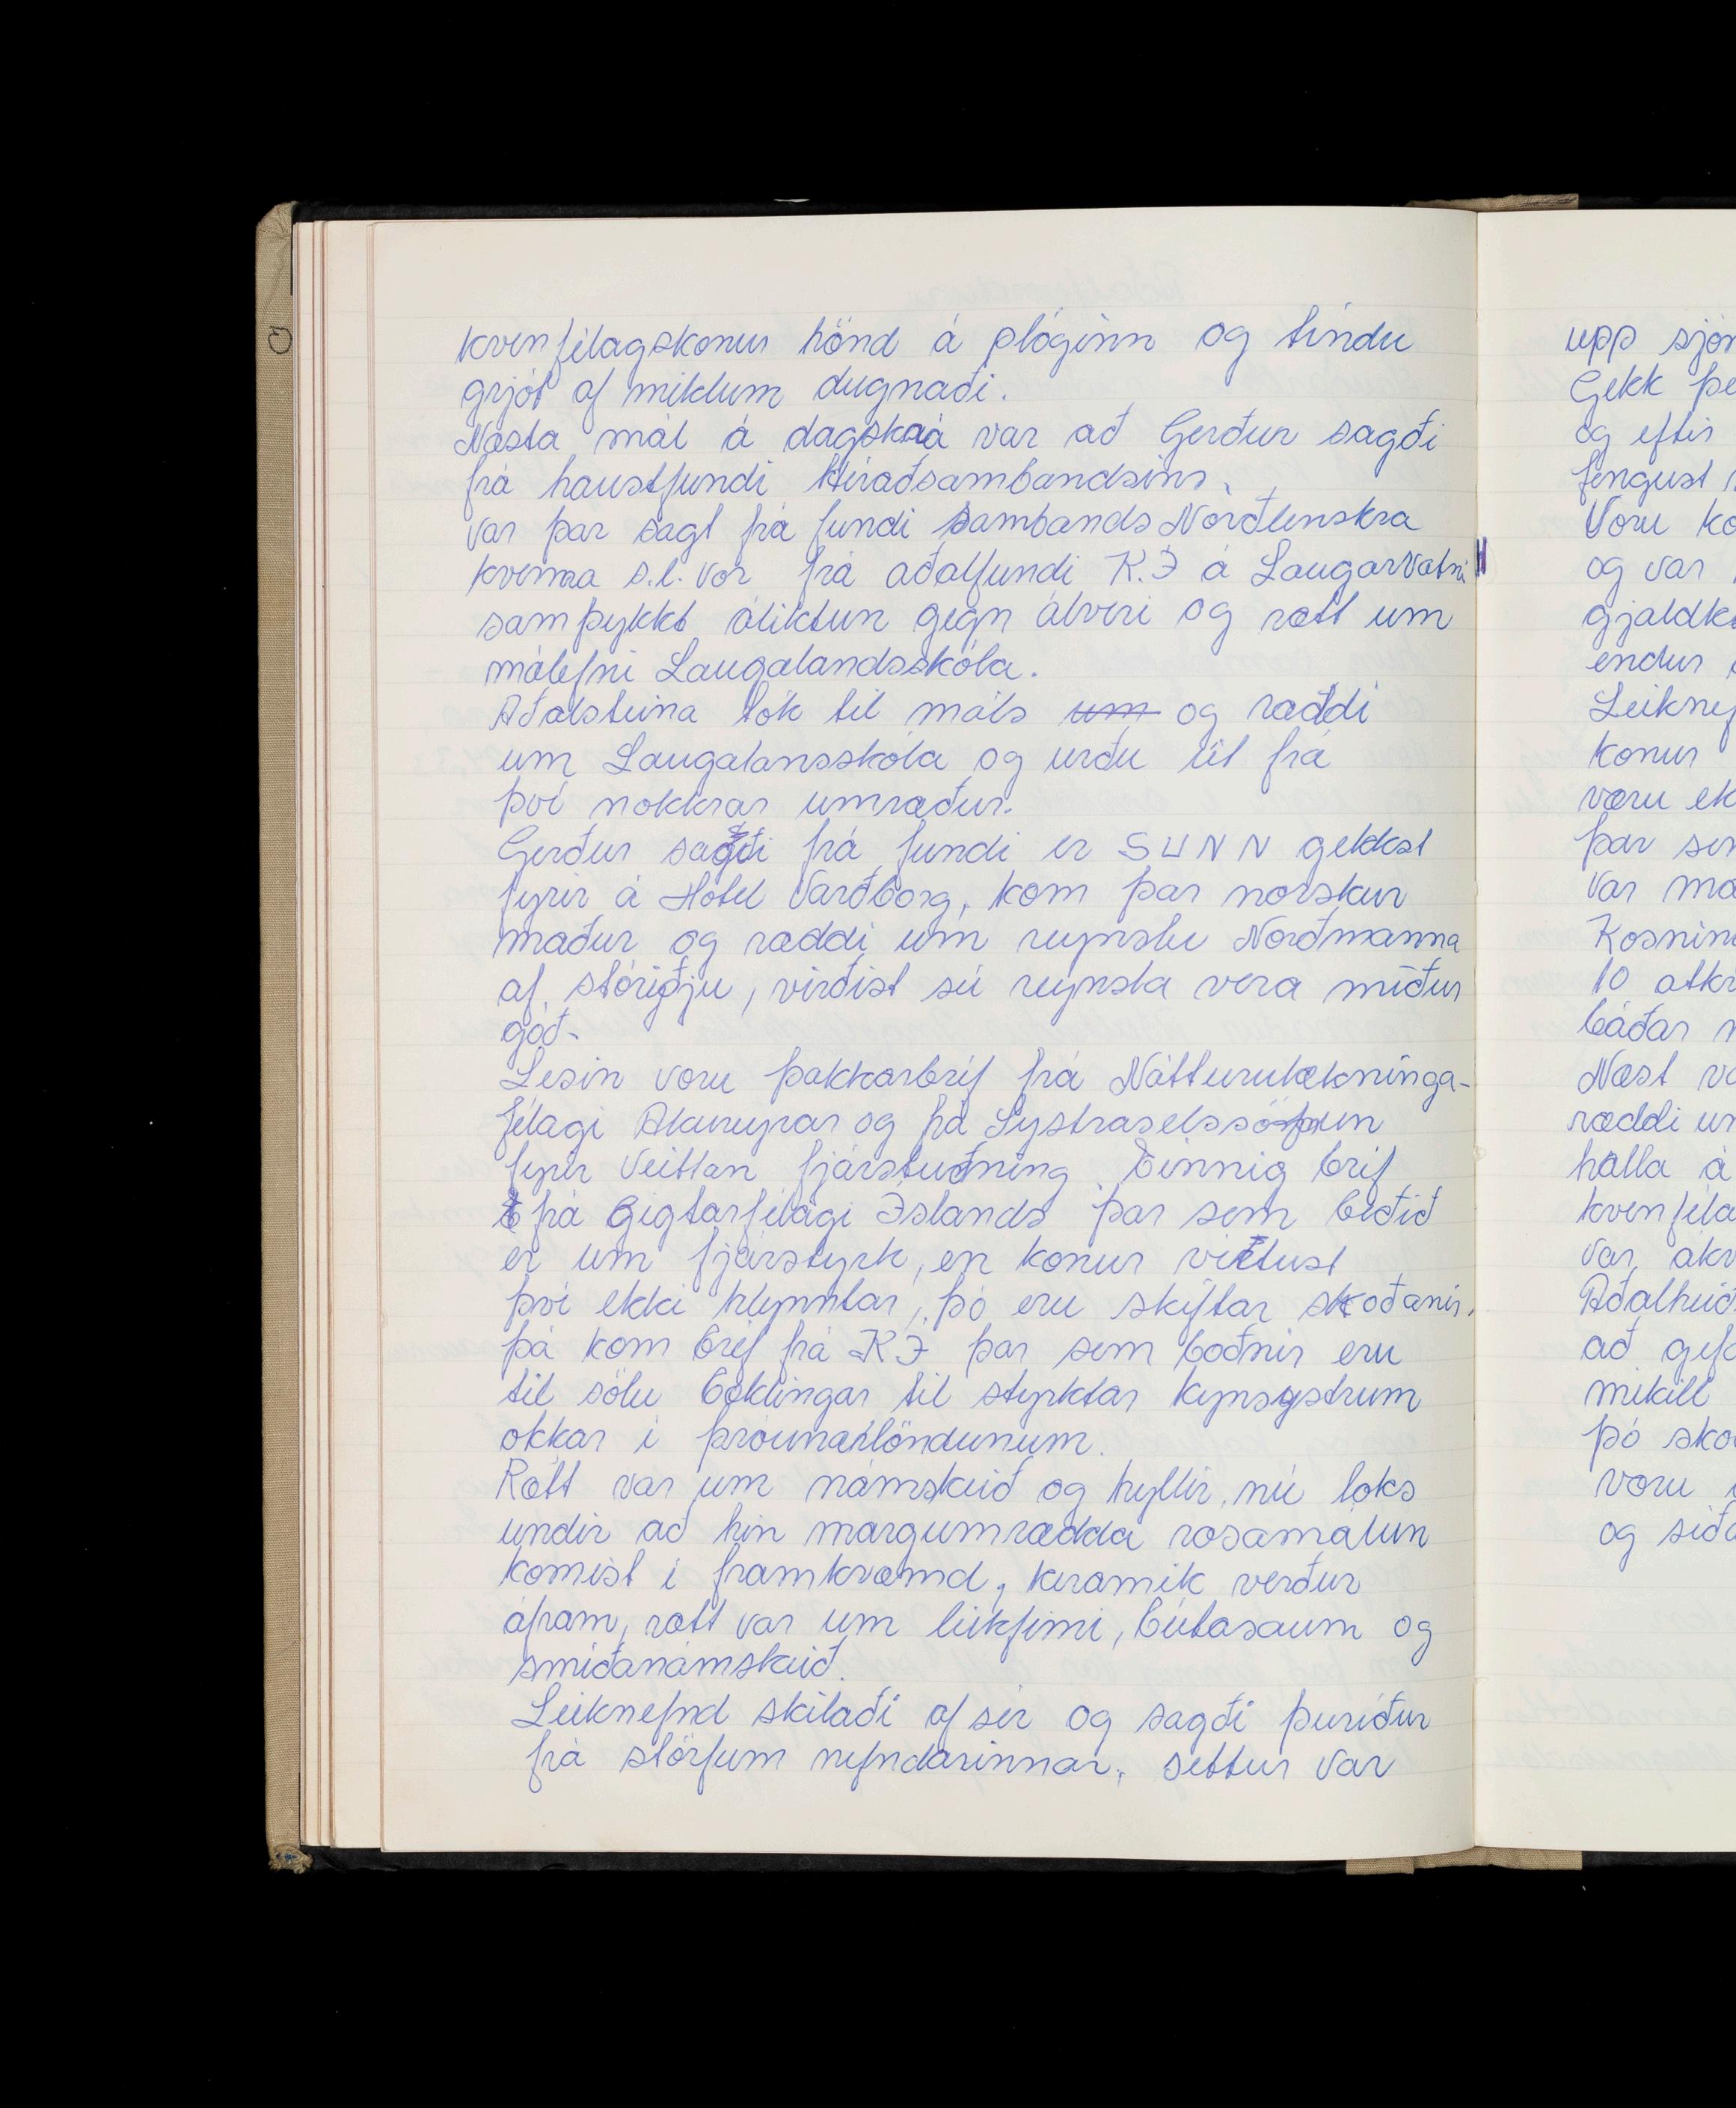 kvenfélagskonur hönd á plóginn og tíndu
grjót af miklum dugnaði.
Næsta mál á dagskrá var að Gerður sagði
frá haustfundi Héraðsambandsins,
var þar sagt frá fundi Sambands Norðlenskra
kvenna s.l. vor frá aðalfundi K.Í á Laugarvatni
samþykkt áliktun gegn álveri og rætt um
málefni Laugalandsskóla.
Aðalsteina tók til máls um og ræddi
um Laugalansskóla og urðu út frá
því nokkrar umræður.
Gerður sagði frá fundi er SUNN gekkst
fyrir á Hótel Varðborg, kom þar norskur
maður og ræddi um reynslu Norðmanna
af stóriðju, virðist sú reynsla vera miður
góð.
Lesin voru þakkarbréf frá Náttúrulækninga-
félagi Akureyrar og frá Systraselssöfnun
fyrir veittan fjárstuðning. Einnig bréf
frá Gigtarfélagi Íslands þar sem beðið
er um fjárstyrk, en konur virtust
því ekki hlynntar, þó eru skiftar skoðanir.
þá kom bréf frá KÍ þar sem boðnir eru
til sölu bæklingar til styrktar kynsystrum
okkar í þróunarlöndunum.
Rætt var um námskeið og hyllir nú loks
undir að hin margumrædda rósamálun
komist í framkvæmd, keramik verður
áfram, rætt var um leikfimi, bútasaum og
smíðanámskeið.
Leiknefnd skilaði af sér og sagði þuríður
frá störfum nefndarinnar, settur var
upp sjón
Gekk þe
og eftir
fengust
Voru ko
og var
gjaldk
endur
Leiknef
konur
væru ek
þar sem
var ma
Kosnin
10 atkv
báðar
Næst va
ræddi um
halla á
kvenféla
var ákv
Aðalheið
að gefa
mikill
þó sko
voru
og síða